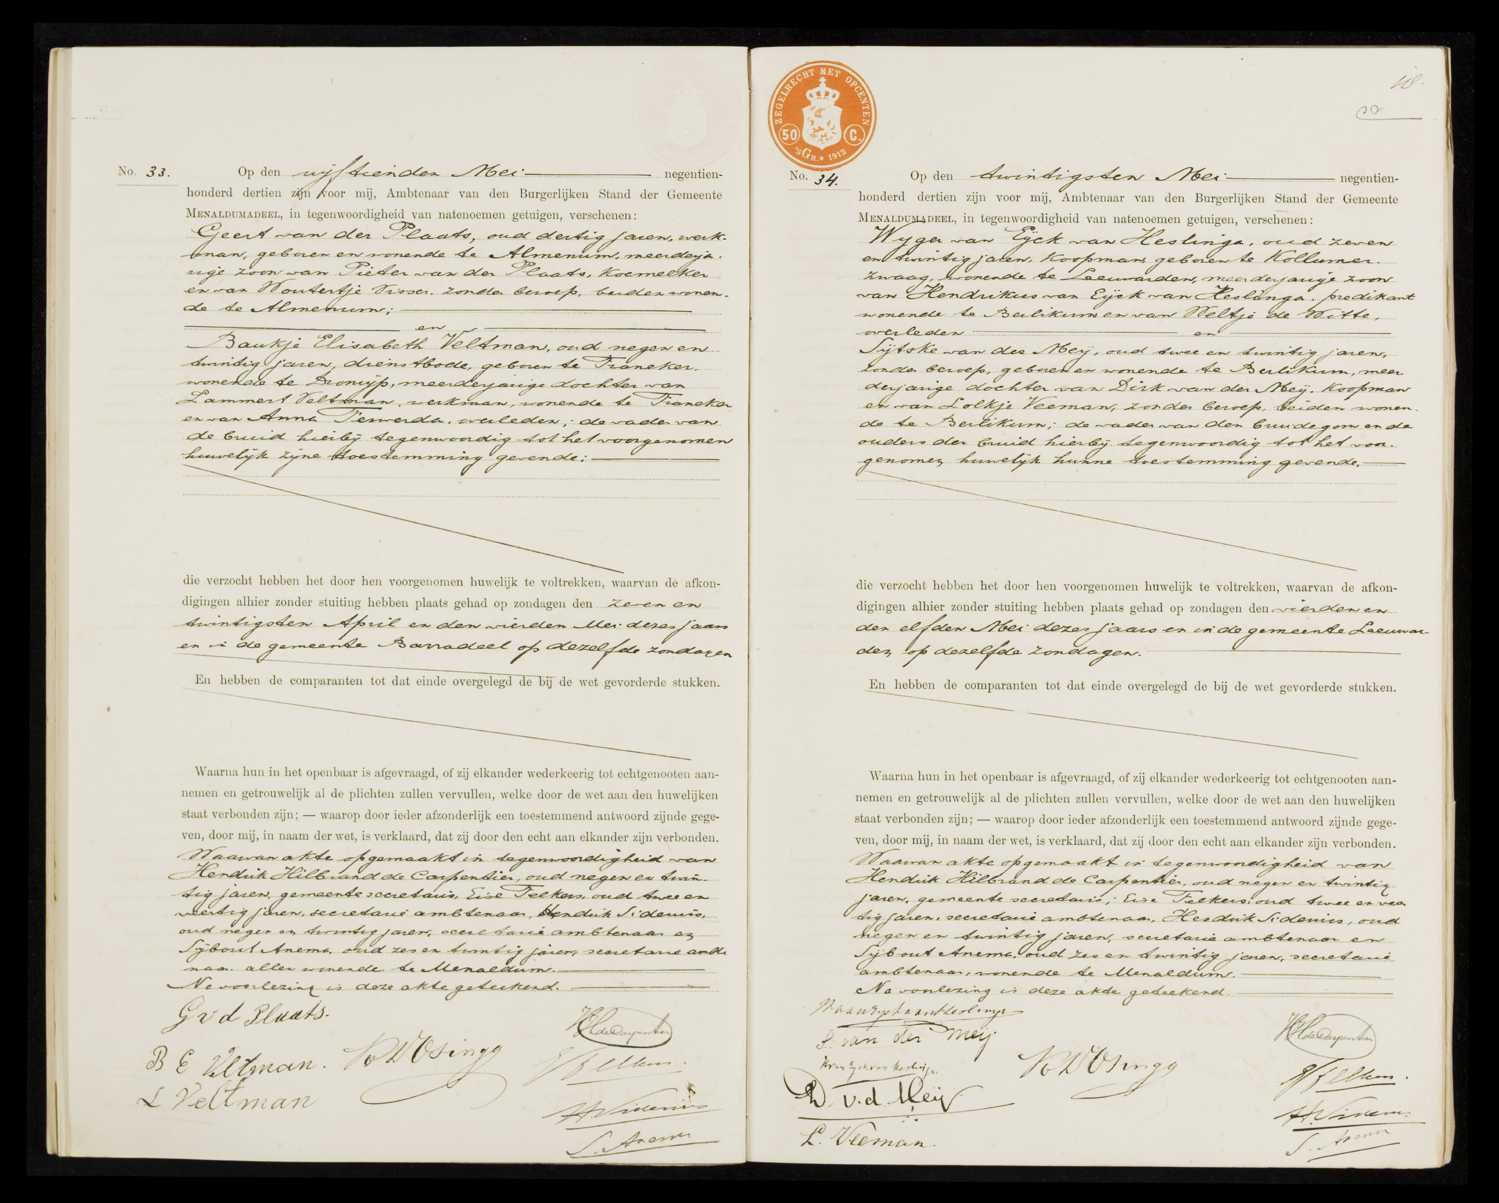 No. 33. Op den vijftienden Mei negentien-
honderd dertien zijn voor mij, Ambtenaar van den Burgerlijken Stand der Gemeente
MENALDUMADEEL, in tegenwoordigheid van natenoemen getuigen, verschenen:
Geert van der Plaats, oud dertig jaren, werk-
man, geboren en wonende te Almenum, meerderja-
rige zoon van Pieter van der Plaats, koemelker
en van Woutertje Visser, zonder beroep, beiden wonen-
de te Almenum;
en
Baukje Elisabeth Veltman, oud negen en
twintig jaren, dienstbode, geboren te Franeker,
wonende te Dronrijp, meerderjarige dochter van
Lammert Veltman, werkman, wonende te Franeker
en van Anna Terwerda, overleden; de vader van
de bruid hierbij tegenwoordig tot het voorgenomen
huwelijk zijne toestemming gevende;
die verzocht hebben het door hen voorgenomen huwelijk te voltrekken, waarvan de afkon-
digingen alhier zonder stuiting hebben plaats gehad op zondagen den zeven en
twintigsten April en den vierden Mei dezes jaars
en in de gemeente Barradeel op dezelfde zondagen
En hebben de comparanten tot dat einde overgelegd de bij de wet gevorderde stukken.
Waarna hun in het openbaar is afgevraagd, of zij elkander wederkeerig tot echtgenooten aan-
nemen en getrouwelijk al de plichten zullen vervullen, welke door de wet aan den huwelijken
staat verbonden zijn; — waarop door ieder afzonderlijk een toestemmend antwoord zijnde gege-
ven, door mij, in naam der wet, is verklaard, dat zij door den echt aan elkander zijn verbonden.
Waarvan akte opgemaakt in tegenwoordigheid van
Hendrik Hilbrand de Carpentier, oud negen en twin-
tig jaren, gemeente secretaris, Eise Felkers, oud twee en
veertig jaren, secretarie ambtenaar, Hendrik Sidenius,
oud negen en twintig jaren, secretarie ambtenaar en
Sijbout Anema, oud zes en twintig jaren, secretarie ambte
naar allen wonende te Menaldum.
Na voorlezing is deze akte geteekend.
G v d Plaats.
B E Veltman.
L Veltman
HHdeCarpentier
S. Anema
ZEGELRECHT MET OPCENTEN
50 C.
GR. 1913
No. 34. Op den twintigsten Mei negentien-
honderd dertien zijn voor mij, Ambtenaar van den Burgerlijken Stand der Gemeente
MENALDUMADEEL, in tegenwoordigheid van natenoemen getuigen, verschenen:
Wyger van Eijck van Heslinga, oud zeven
en twintig jaren, koopman geboren te Kollumer-
zwaag, wonende te Leeuwarden, meerderjarige zoon
van Hendrikus van Eijck van Heslinga, predikant
wonende te Berlikum en van Neeltje de Witte,
overleden en
Sijtske van der Meij, oud twee en twintig jaren,
zonder beroep, geboren en wonende te Berlikum, meer
derjarige dochter van Dirk van der Meij, koopman
en van Lolkje Veeman, zonder beroep, beiden wonen-
de te Berlikum; de vader van den bruidegom en de
ouders der bruid hierbij tegenwoordig tot het voor-
genomen huwelijk hunne toestemming gevende,
die verzocht hebben het door hen voorgenomen huwelijk te voltrekken, waarvan de afkon-
digingen alhier zonder stuiting hebben plaats gehad op zondagen den vierden en
den elfden Mei dezes jaars en in de gemeente Leeuwar-
den op dezelfde zondagen.
En hebben de comparanten tot dat einde overgelegd de bij de wet gevorderde stukken.
Waarna hun in het openbaar is afgevraagd, of zij elkander wederkeerig tot echtgenooten aan-
nemen en getrouwelijk al de plichten zullen vervullen, welke door de wet aan den huwelijken
staat verbonden zijn; — waarop door ieder afzonderlijk een toestemmend antwoord zijnde gege-
ven, door mij, in naam der wet, is verklaard, dat zij door den echt aan elkander zijn verbonden.
Waarvan akte opgemaakt in tegenwoordigheid van
Hendrik Hilbrand de Carpentier, oud negen en twintig
jaren, gemeente secretaris; Eise Felkers, oud twee en veer
tig jaren, secretarie ambtenaar, Hendrik Sidenius, oud
negen en twintig jaren, secretarie ambtenaar en
Sijbout Anema, oud zes en twintig jaren, secretarie
ambtenaar, wonende te Menaldum.
Na voorlezing is deze akte geteekend.
S. van der Meij
D. v. d. Meij
L. Veeman.
HHdeCarpentier
S. Anema